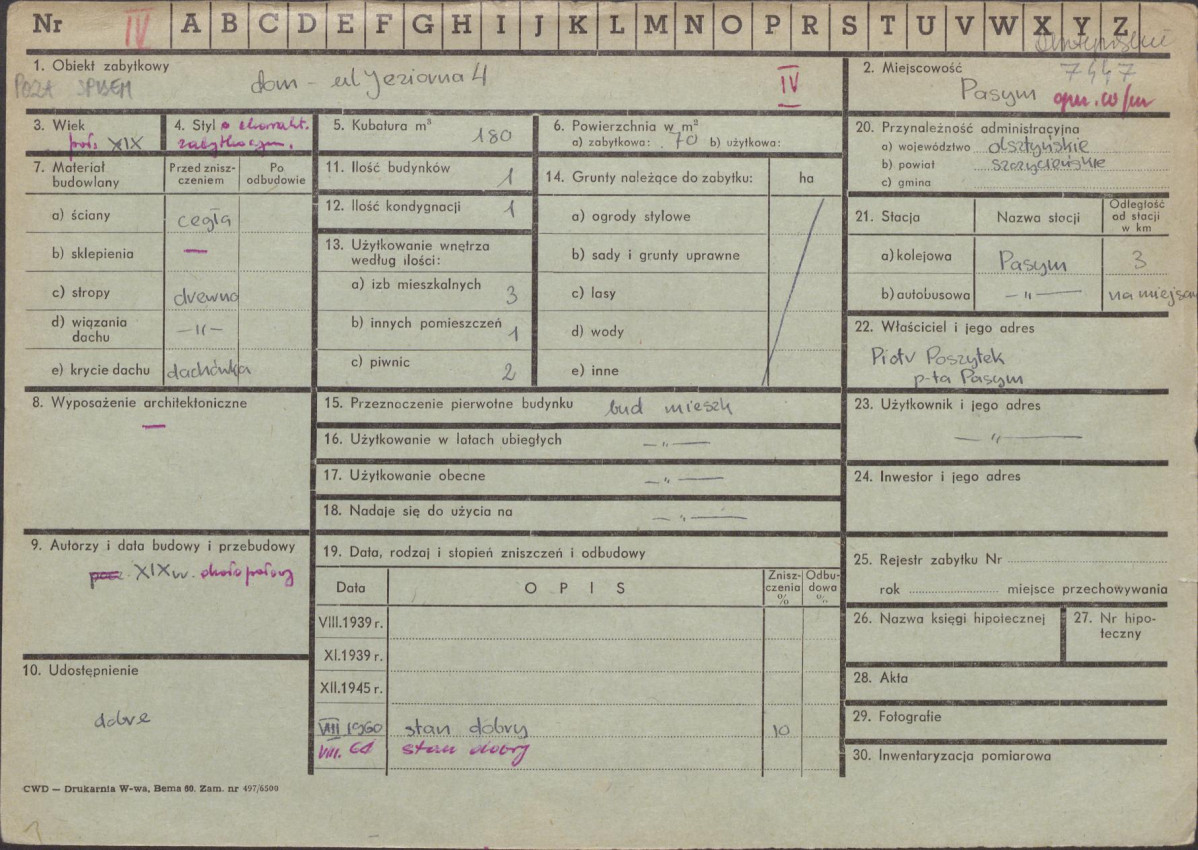 Nr IV A B C D E F G H I J K L M N O P R S T U V W X Y Z
1. Obiekt zabytkowy
POZA SPISEM
dom - ul Jeziorna 4
IV
2. Miejscowość
7447
Pasym
3. Wiek
poł. XIX
4. Styl o charakt.
zabytkowym.
5. Kubatura m³
180
6. Powierzchnia w m²
a) zabytkowa: 70 b) użytkowa:
7. Materiał budowlany
Przed znisz-
czeniem
Po
odbudowie
a) ściany cegła
b) sklepienia —
c) stropy drewno
d) wiązania
dachu —"—
e) krycie dachu dachówka
11. Ilość budynków 1
12. Ilość kondygnacji 1
13. Użytkowanie wnętrza
według ilości:
a) izb mieszkalnych 3
b) innych pomieszczeń 1
c) piwnic 2
14. Grunty należące do zabytku: ha
a) ogrody stylowe
b) sady i grunty uprawne
c) lasy
d) wody
e) inne
20. Przynależność administracyjna
a) województwo olsztyńskie
b) powiat szczycieńskie
c) gmina
21. Stacja
Nazwa stacji
Odległość
od stacji
w km
a) kolejowa Pasym 3
b) autobusowa —"— na miejscu
22. Właściciel i jego adres
Piotr Poszytek
p-ta Pasym
8. Wyposażenie architektoniczne
—
15. Przeznaczenie pierwotne budynku bud mieszk
16. Użytkowanie w latach ubiegłych —"—
17. Użytkowanie obecne —"—
18. Nadaje się do użycia na —"—
23. Użytkownik i jego adres
—"—
24. Inwestor i jego adres
9. Autorzy i data budowy i przebudowy
XIX w. około połowy
19. Data, rodzaj i stopień zniszczeń i odbudowy
Data
O P I S
Znisz-
czenia
%
Odbu-
dowa
%
VIII.1939 r.
XI.1939 r.
XII.1945 r.
VIII 1960 stan dobry 10
VIII. 61 stan dobry
25. Rejestr zabytku Nr
rok miejsce przechowywania
26. Nazwa księgi hipotecznej
27. Nr hipo-
teczny
28. Akta
29. Fotografie
30. Inwentaryzacja pomiarowa
10. Udostępnienie
dobre
CWD — Drukarnia W-wa, Bema 60. Zam. nr 497/6500